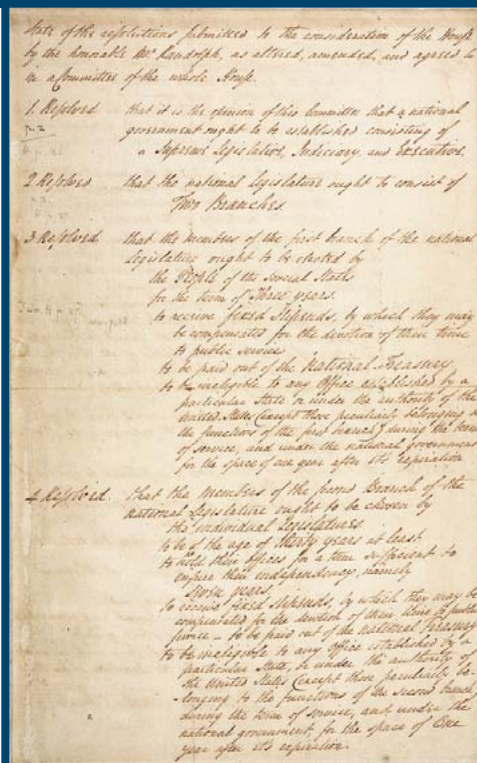 State of the resolutions submitted to the consideration of the House
by the honorable Mr. Randolph, as altered, amended, and agreed to
in a Committee of the whole House.
1. Resolved that it is the opinion of this Committee that a national
government ought to be established consisting of
a Supreme Legislative, Judiciary, and Executive.
2 Resolved that the national Legislature ought to consist of
Two Branches.
3 Resolved that the members of the first branch of the national
Legislature ought to be elected by
the People of the several States
for the term of Three years.
to receive fixed stipends, by which they may
be compensated for the devotion of their time
to public service
to be paid out of the National Treasury
to be ineligible to any Office established by a
particular State or under the authority of the
United States (except those peculiarly belonging to
the functions of the first branch) during the term
of service, and under the national government
for the space of one year after its expiration
4 Resolved. that the members of the second Branch of the
national Legislature ought to be chosen by
the individual Legislatures
to be of the age of thirty years at least
to hold their offices for a term sufficient to
ensure their independency, namely
seven years,
to receive fixed stipends, by which they may be
compensated for the devotion of their time to public
service - to be paid out of the national Treasury
to be ineligible to any Office established by a
particular State, or under the authority of
the United States (except those peculiarly be-
longing to the functions of the second branch)
during the term of service, and under the
national government, for the space of One
year after it's expiration.